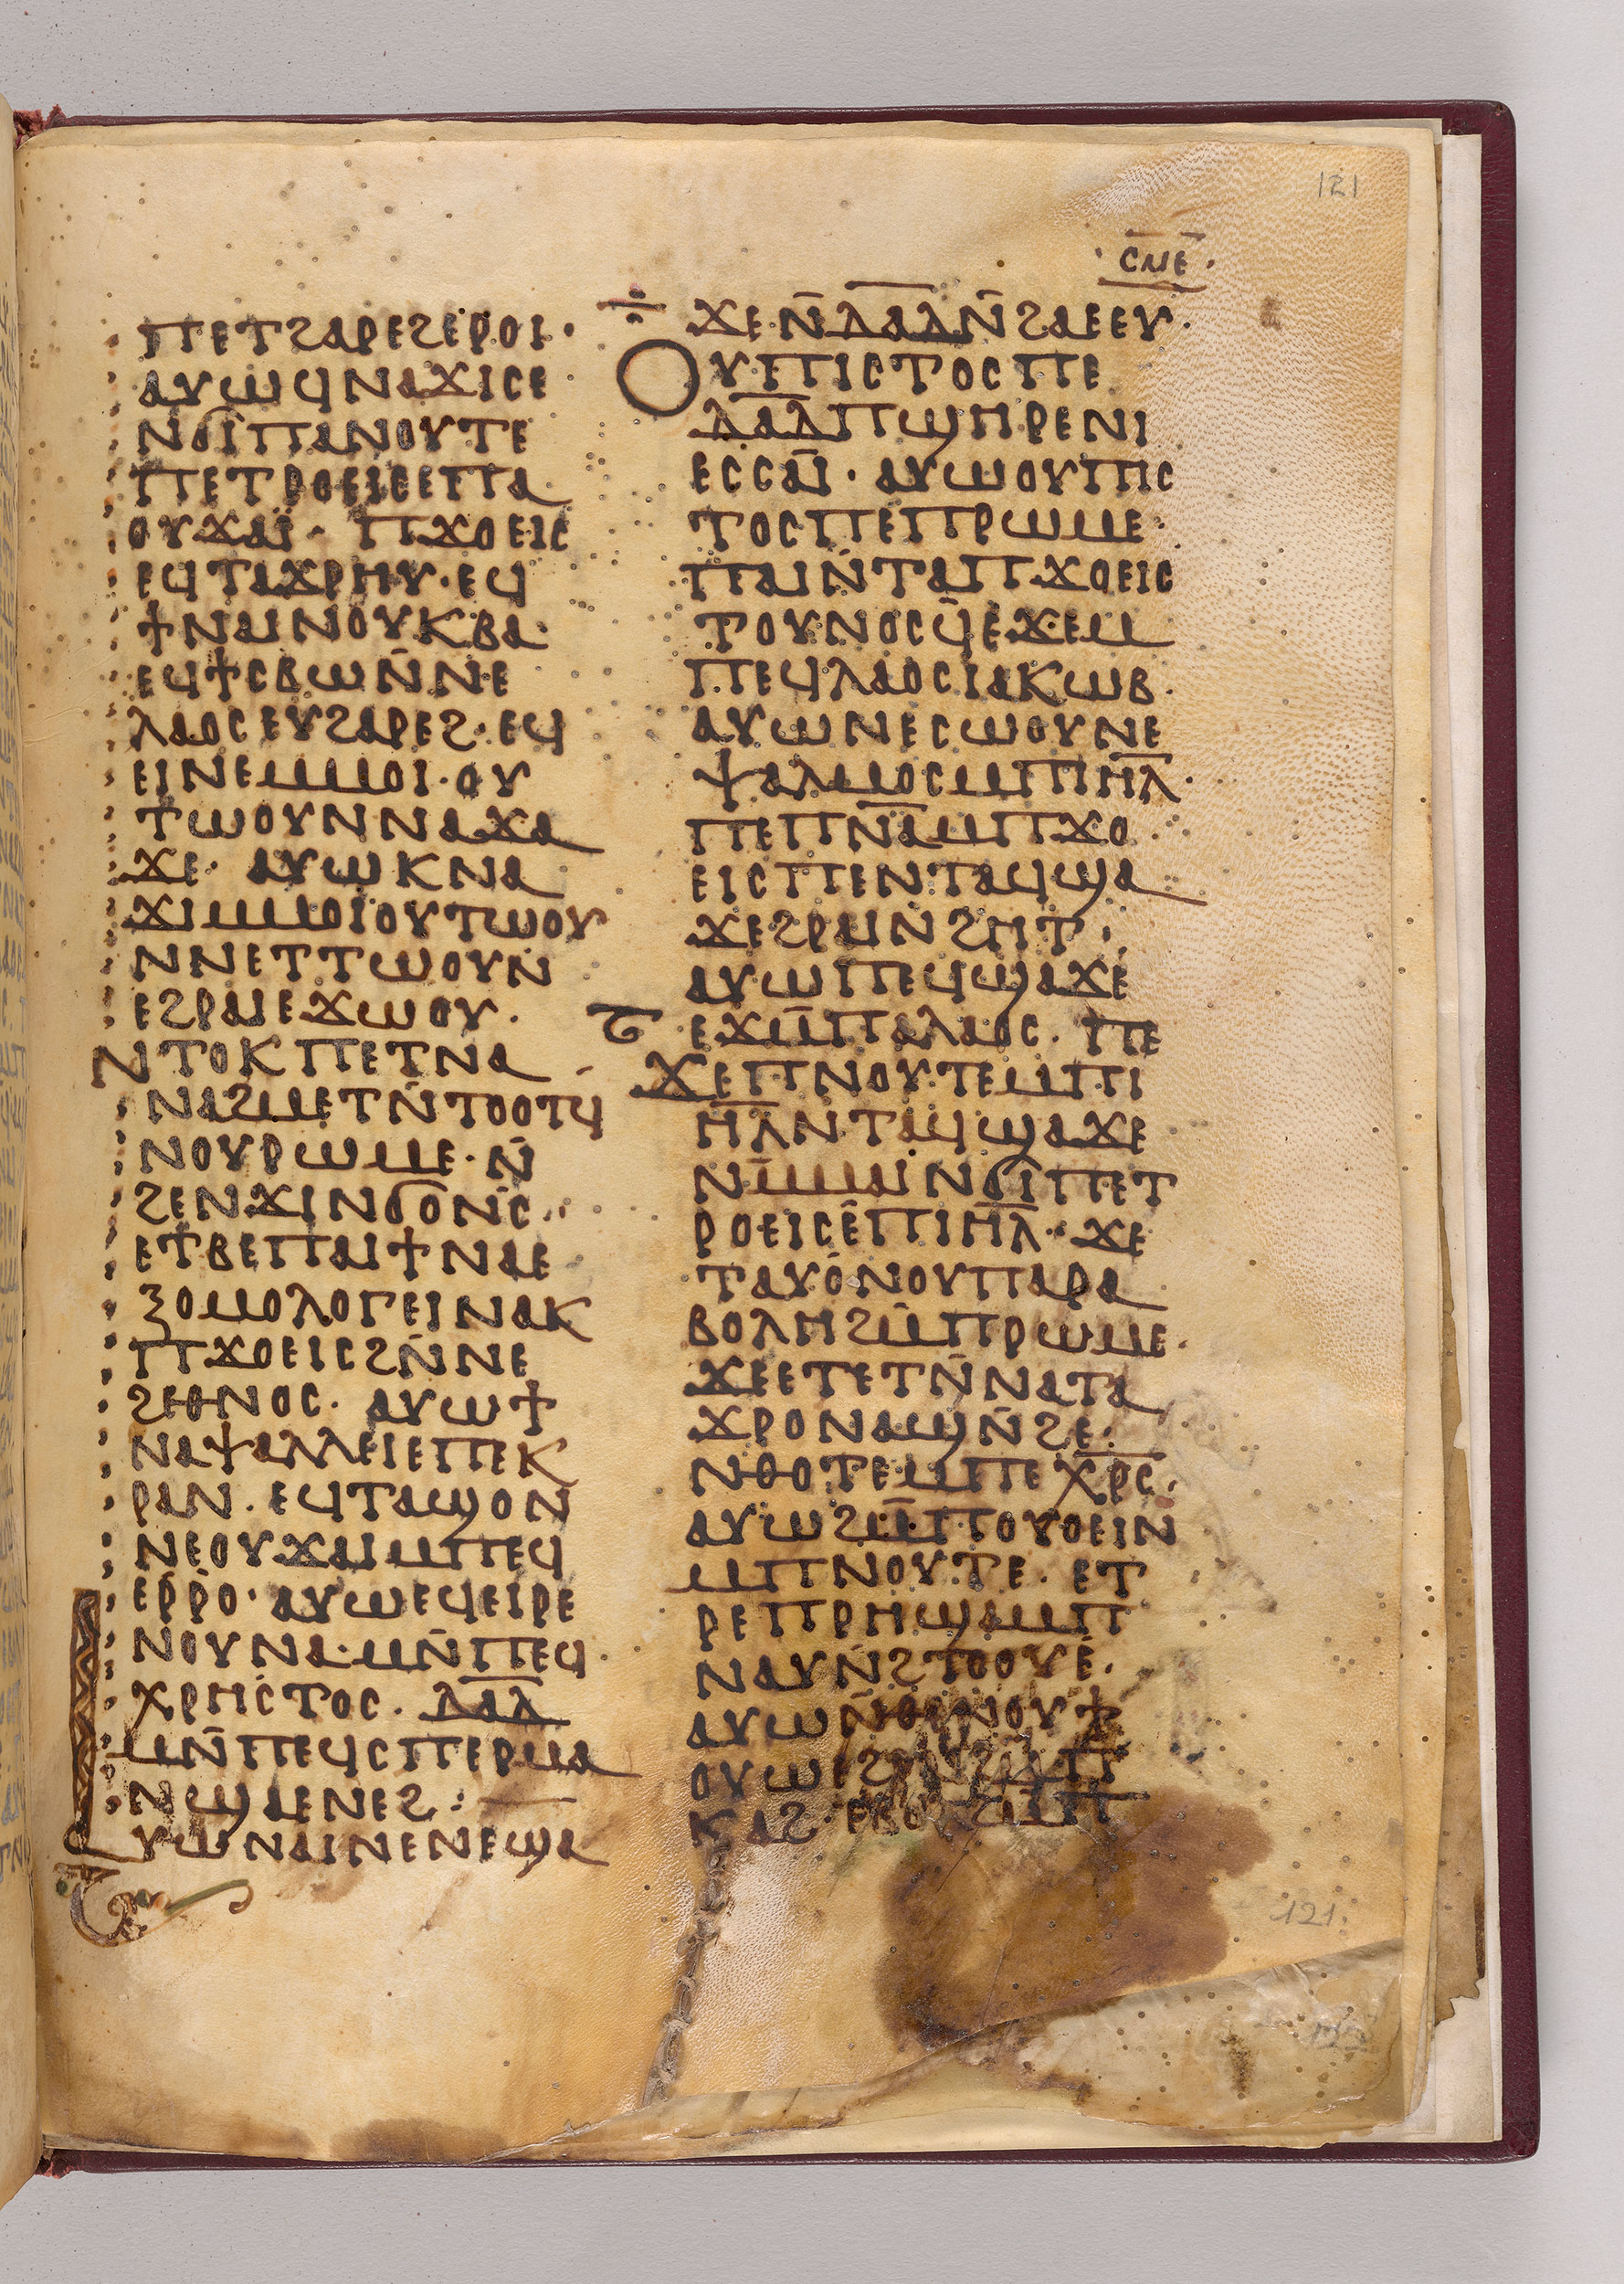 121
ⲥⲛⲉ
ⲡⲉⲧϩⲁⲣⲉϩⲉⲣⲟⲓ·
ⲁⲩⲱϥⲛⲁϫⲓⲥⲉ
ⲛϭⲓⲡⲁⲛⲟⲩⲧⲉ
ⲡⲉⲧⲣⲟⲉⲓⲥⲉⲡⲁ
ⲟⲩϫⲁⲓ̈· ⲡϫⲟⲉⲓⲥ
ⲉϥⲧⲁϫⲣⲏⲩ·ⲉϥ
ϯⲛⲁⲓⲛⲟⲩⲕⲃⲁ·
ⲉϥϯⲥⲃⲱⲛ̄ⲛⲉ
ⲗⲁⲟⲥⲉⲩϩⲁⲣⲉϩ·ⲉϥ
ⲉⲓⲛⲉⲙⲙⲟⲓ·ⲟⲩ
ⲧⲱⲟⲩⲛⲛⲁϫⲁ
ϫⲉ· ⲁⲩⲱⲕⲛⲁ
ϫⲓⲙⲙⲟⲓⲟⲩⲧⲱⲟⲩ
ⲛⲛⲉⲧⲧⲱⲟⲩⲛ
ⲉϩⲣⲁⲓⲉϫⲱⲟⲩ·
ⲛⲧⲟⲕⲡⲉⲧⲛⲁ
ⲛⲁϩⲙⲉⲧⲛ̄ⲧⲟⲟⲧϥ
ⲛⲟⲩⲣⲱⲙⲉ·ⲛ̄
ϩⲉⲛϫⲓⲛϭⲟⲛ̄ⲥ
ⲉⲧⲃⲉⲡⲁⲓϯⲛⲁⲉ
ⲝⲟⲙⲟⲗⲟⲅⲉⲓⲛⲁⲕ
ⲡϫⲟⲉⲓⲥϩⲛ̄ⲛⲉ
ϩⲉⲑⲛⲟⲥ· ⲁⲩⲱϯ
ⲛⲁⲯⲁⲗⲗⲉⲓⲉⲡⲉⲕ
ⲣⲁⲛ· ⲉϥⲧⲁϣⲟⲛ
ⲛⲉⲟⲩϫⲁⲓⲙⲡⲉϥ
ⲉⲣⲣⲟ· ⲁⲩⲱⲉϥⲉⲓⲣⲉ
ⲛⲟⲩⲛⲁ·ⲙⲛ̄ⲡⲉϥ·
ⲭⲣⲏⲥⲧⲟⲥ· ⲇⲁ̅ⲇ
ⲙⲛ̄ⲡⲉϥⲥⲡⲉⲣⲙⲁ
ⲛϣⲁⲉⲛⲉϩ·
ⲁⲩⲱⲛⲁⲓⲛⲉⲛⲉϣⲁ
ϫⲉⲛ̄ⲇⲁ̅ⲇⲛ̄ϩⲁⲉⲉⲩ·
ⲟⲩⲡⲓⲥⲧⲟⲥⲡⲉ
ⲇⲁ̅ⲇⲡϣⲏⲣⲉⲛⲓ
ⲉⲥⲥⲁⲓ̄· ⲁⲩⲱⲟⲩⲡⲓⲥ
ⲧⲟⲥⲡⲉⲡⲣⲱⲙⲉ·
ⲡⲁⲓⲛ̄ⲧⲁⲡϫⲟⲉⲓⲥ
ⲧⲟⲩⲛⲟⲥϥ̄ⲉϫⲉⲙ
ⲡⲉϥⲗⲁⲟⲥⲓⲁⲕⲱⲃ·
ⲁⲩⲱⲛⲉⲥⲱⲟⲩⲛⲉ
ⲯⲁⲗⲙⲟⲥⲙⲡⲓⲏ̅ⲗ·
ⲡⲉⲡⲛ̅ⲁⲙⲡϫⲟ
ⲉⲓⲥⲡⲉⲛⲧⲁϥϣⲁ
ϫⲉϩⲣⲁⲓⲛ̄ϩⲏⲧ·
ⲁⲩⲱⲡⲉϥϣⲁϫⲉ
ⲉϫⲙ̄ⲡⲁⲗⲁⲟⲥ· ⲡⲉ
ϫⲉⲡⲛⲟⲩⲧⲉⲙⲡⲓ
ⲏ̅ⲗⲛⲧⲁϥϣⲁϫⲉ
ⲛⲙ̄ⲙⲁⲓⲛϭⲓⲡⲉⲧ
ⲣⲟⲉⲓⲥⲉⲡⲓⲏ̅ⲗ· ϫⲉ
ⲧⲁⲩⲟⲛⲟⲩⲡⲁⲣⲁ
ⲃⲟⲗⲏϩⲙ̄ⲡⲣⲱⲙⲉ·
ϫⲉⲉⲧⲉⲧⲛ̄ⲛⲁⲧⲁ
ϫⲣⲟⲛⲁϣⲛ̄ϩⲉ·
ⲛⲑⲟⲧⲉⲙⲡⲉⲭⲣ̅ⲥ·
ⲁⲩⲱϩⲙ̄ⲡⲟⲩⲟⲉⲓⲛ
ⲙⲡⲛⲟⲩⲧⲉ· ⲉⲧ
ⲣⲉⲡⲣⲏϣⲁⲙⲡ
ⲛⲁⲩⲛ̄ϩⲧⲟⲟⲩⲉ·
ⲁⲩⲱⲛ̄
ⲟⲩⲱ
ⲕⲁϩ·ⲉⲃⲟⲗϩⲙ̄ⲡ
121